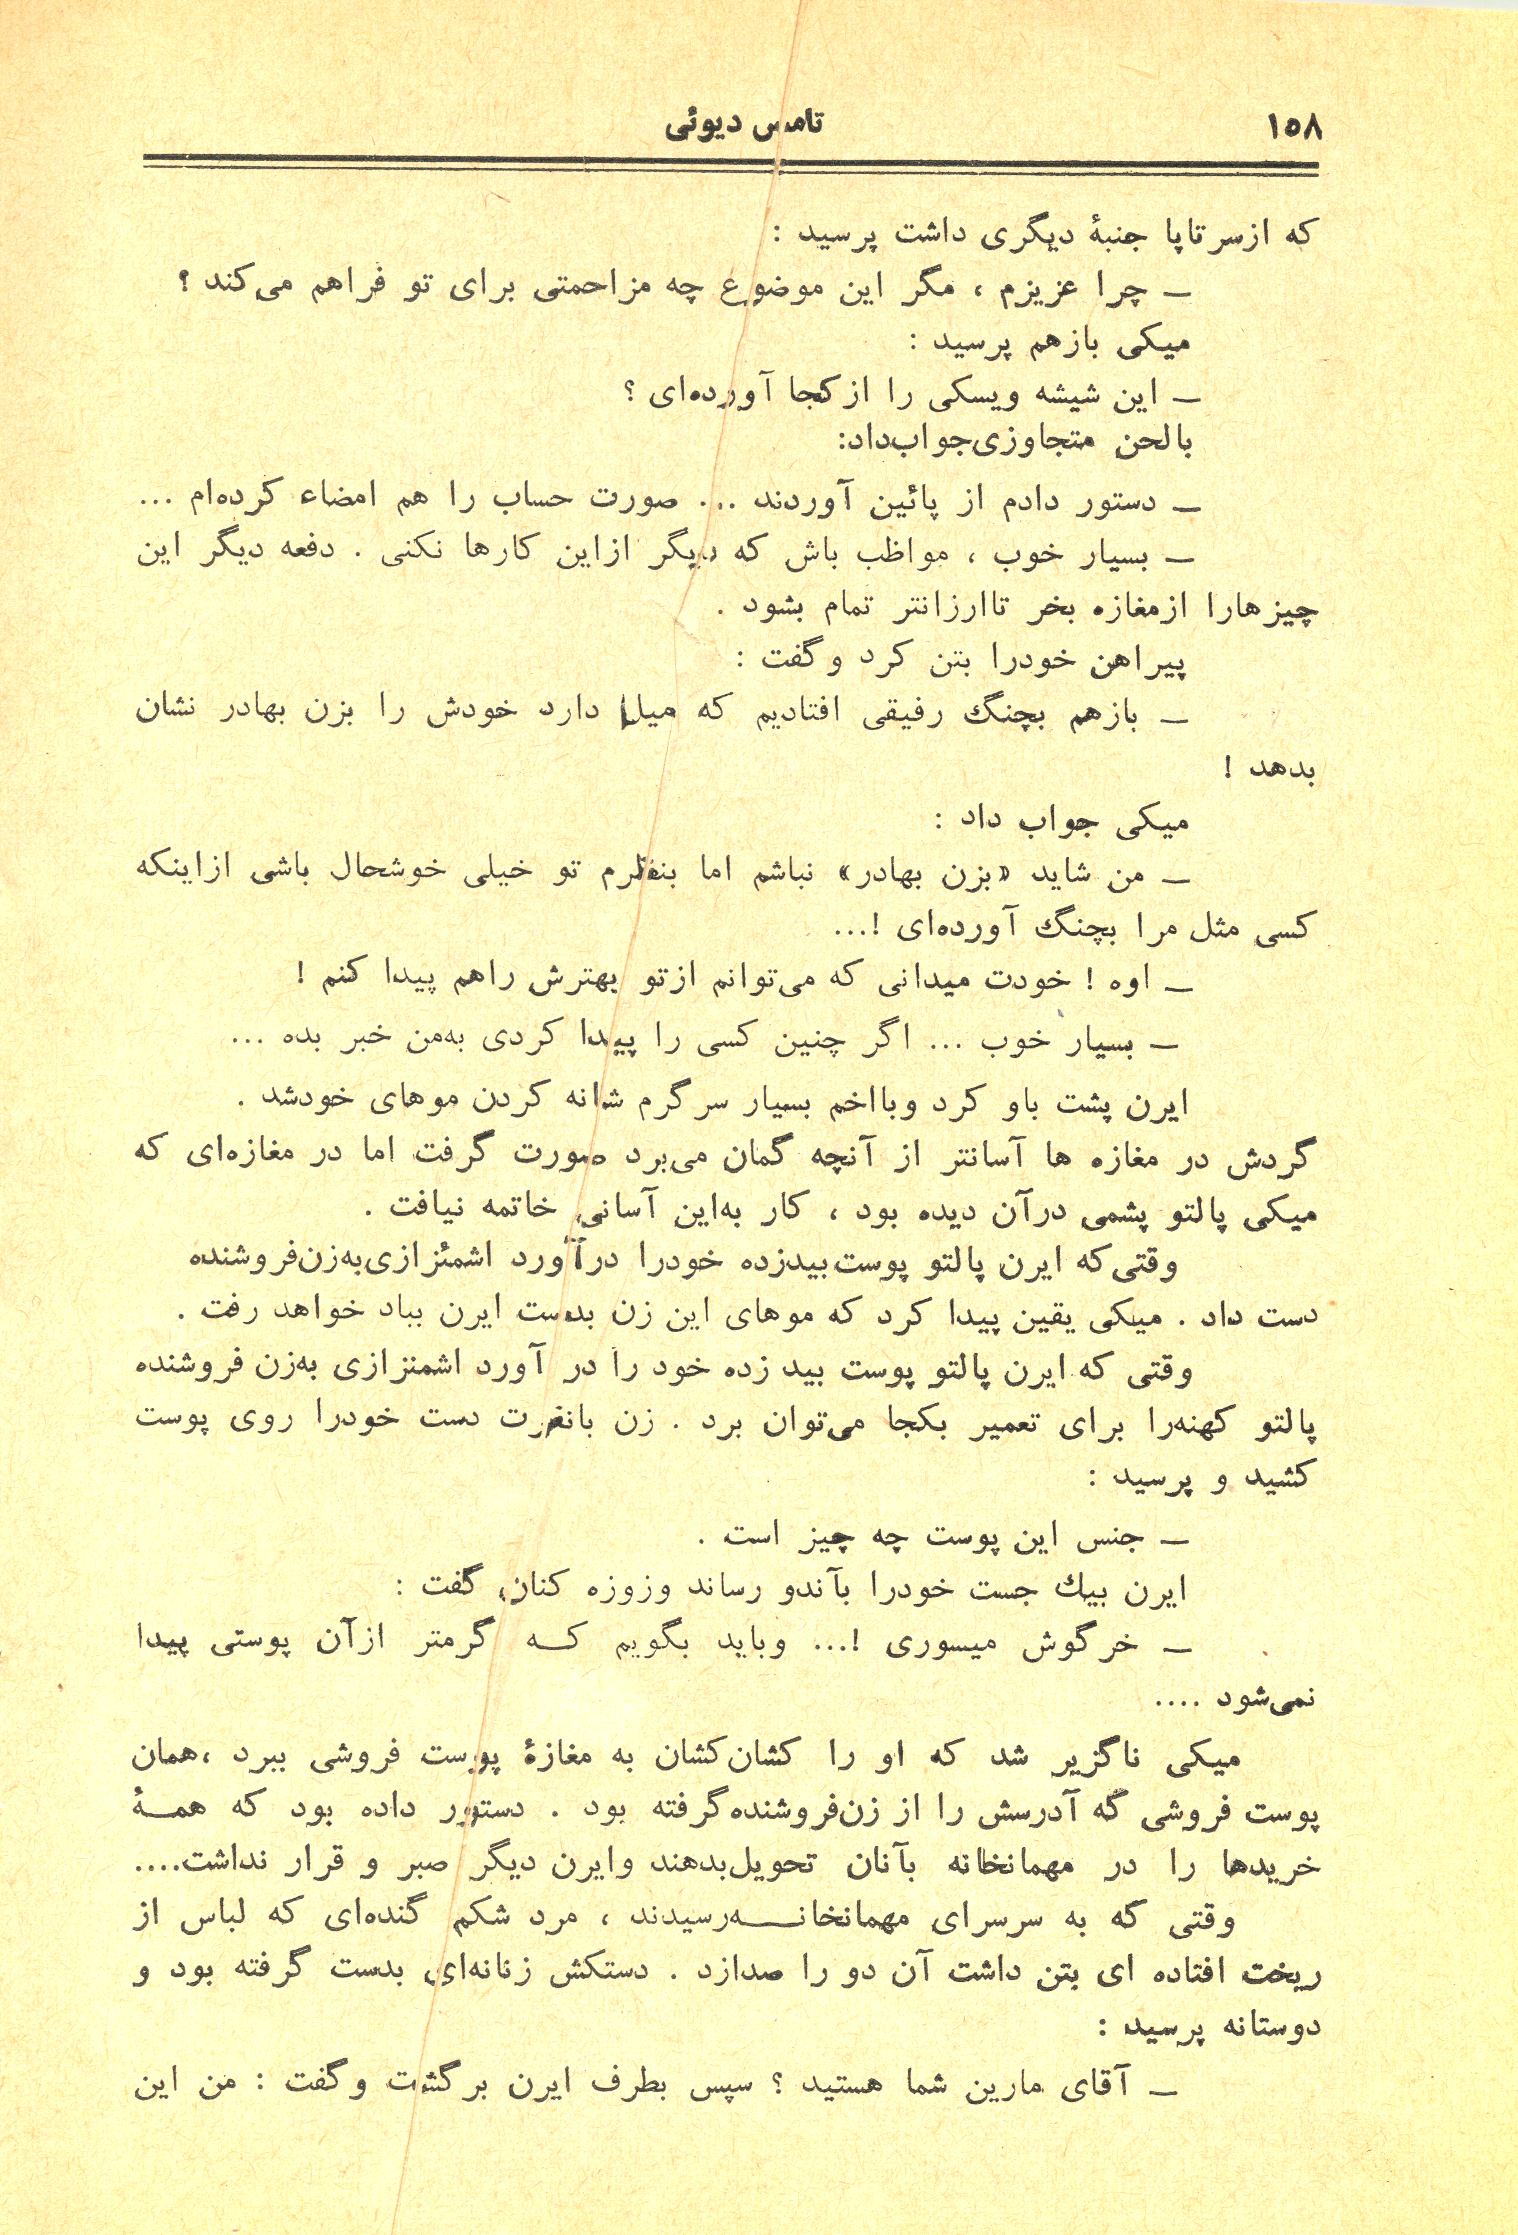 ۱۵۸
تامس دیوئی
که ازسرتاپا جنبهٔ دیگری داشت پرسید :
ـ چرا عزیزم ، مگر این موضوع چه مزاحمتی برای تو فراهم می‌کند ؟
میکی بازهم پرسید :
ـ این شیشه ویسکی را ازکجا آورده‌ای ؟
بالحن متجاوزی‌جواب‌داد:
ـ دستور دادم از پائین آوردند ... صورت حساب را هم امضاء کرده‌ام ...
ـ بسیار خوب ، مواظب باش که دیگر ازاین کارها نکنی . دفعه دیگر این
چیزهارا ازمغازه بخر تاارزانتر تمام بشود .
پیراهن خودرا بتن کرد وگفت :
ـ بازهم بچنگ رفیقی افتادیم که میل دارد خودش را بزن بهادر نشان
بدهد !
میکی جواب داد :
ـ من شاید «بزن بهادر» نباشم اما بنظرم تو خیلی خوشحال باشی ازاینکه
کسی مثل مرا بچنگ آورده‌ای !...
ـ اوه ! خودت میدانی که می‌توانم ازتو بهترش راهم پیدا کنم !
ـ بسیار خوب ... اگر چنین کسی را پیدا کردی به‌من خبر بده ...
ایرن پشت باو کرد وبااخم بسیار سرگرم شانه کردن موهای خودشد .
گردش در مغازه ها آسانتر از آنچه گمان می‌برد صورت گرفت اما در مغازه‌ای که
میکی پالتو پشمی درآن دیده بود ، کار به‌این آسانی خاتمه نیافت .
وقتی‌که ایرن پالتو پوست‌بیدزده خودرا درآورد اشمئزازی‌به‌زن‌فروشنده
دست داد . میکی یقین پیدا کرد که موهای این زن بدست ایرن بباد خواهد رفت .
وقتی که ایرن پالتو پوست بید زده خود را در آورد اشمنزازی به‌زن فروشنده
پالتو کهنه‌را برای تعمیر بکجا می‌توان برد . زن بانفرت دست خودرا روی پوست
کشید و پرسید :
ـ جنس این پوست چه چیز است .
ایرن بیک جست خودرا بآندو رساند وزوزه کنان گفت :
ـ خرگوش میسوری !... وباید بگویم کــه گرمتر ازآن پوستی پیدا
نمی‌شود ....
میکی ناگزیر شد که او را کشان‌کشان به مغازهٔ پوست فروشی ببرد ،همان
پوست فروشی که آدرسش را از زن‌فروشنده‌گرفته بود . دستور داده بود که همــهٔ
خریدها را در مهمانخانه بآنان تحویل‌بدهند وایرن دیگر صبر و قرار نداشت....
وقتی که به سرسرای مهمانخانــــه‌رسیدند ، مرد شکم گنده‌ای که لباس از
ریخت افتاده ای بتن داشت آن دو را صدازد . دستکش زنانه‌ای بدست گرفته بود و
دوستانه پرسید :
ـ آقای مارین شما هستید ؟ سپس بطرف ایرن برگشت وگفت : من این